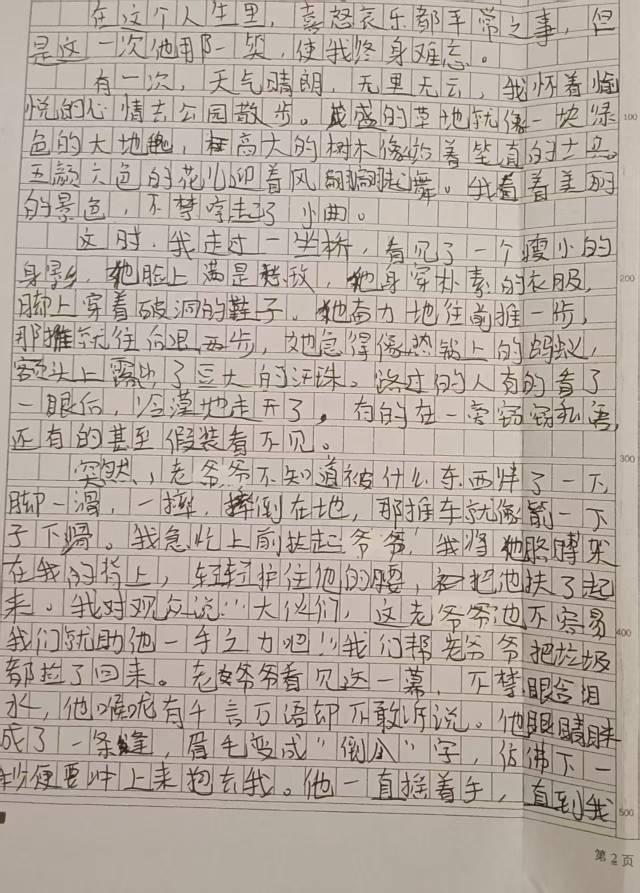 在这个人生里，喜怒哀乐都平常之事，但
是这一次他那一笑，使我终身难忘。
有一次，天气晴朗，无里无云，我怀着愉
悦的心情去公园散步。盛的草地就像一块绿
色的大地毯，高大的树木像站着坐直的士兵。
五颜六色的花儿迎着风翩翩起舞。我看着美丽
的景色，不禁哼起了小曲。
这时，我走过一坐桥，看见了一个瘦小的
身影，他脸上满是愁纹，他身穿朴素的衣服，
脚上穿着破洞的鞋子。他奋力地往前推一步，
那推就往后退两步，她急得像热锅上的蚂蚁，
额头上露出了豆大的汗珠。路过的人有的看了
一眼后，冷漠地走开了，有的在一旁窃窃私语，
还有的甚至假装看不见。
突然，老爷爷不知道被什么东西绊了一下，
脚一滑，一摔，摔倒在地，那推车就像箭一下
子下滑。我急忙上前扶起爷爷，我将他胳膊架
在我的背上，轻轻护住他的腰，把他扶了起
来。我对观众说：“大伙们，这老爷爷也不容易
我们就助他一手之力吧！”我们帮老爷爷把垃圾
都捡了回来。老爷爷看见这一幕，不禁眼含泪
水，他喉咙有千言万语却不敢诉说。他眼睛眯
成了一条缝，眉毛变成“倒八”字，仿佛下一
秒便要冲上来抱去我。他一直摇着手，直到我
100
200
300
400
500
第2页